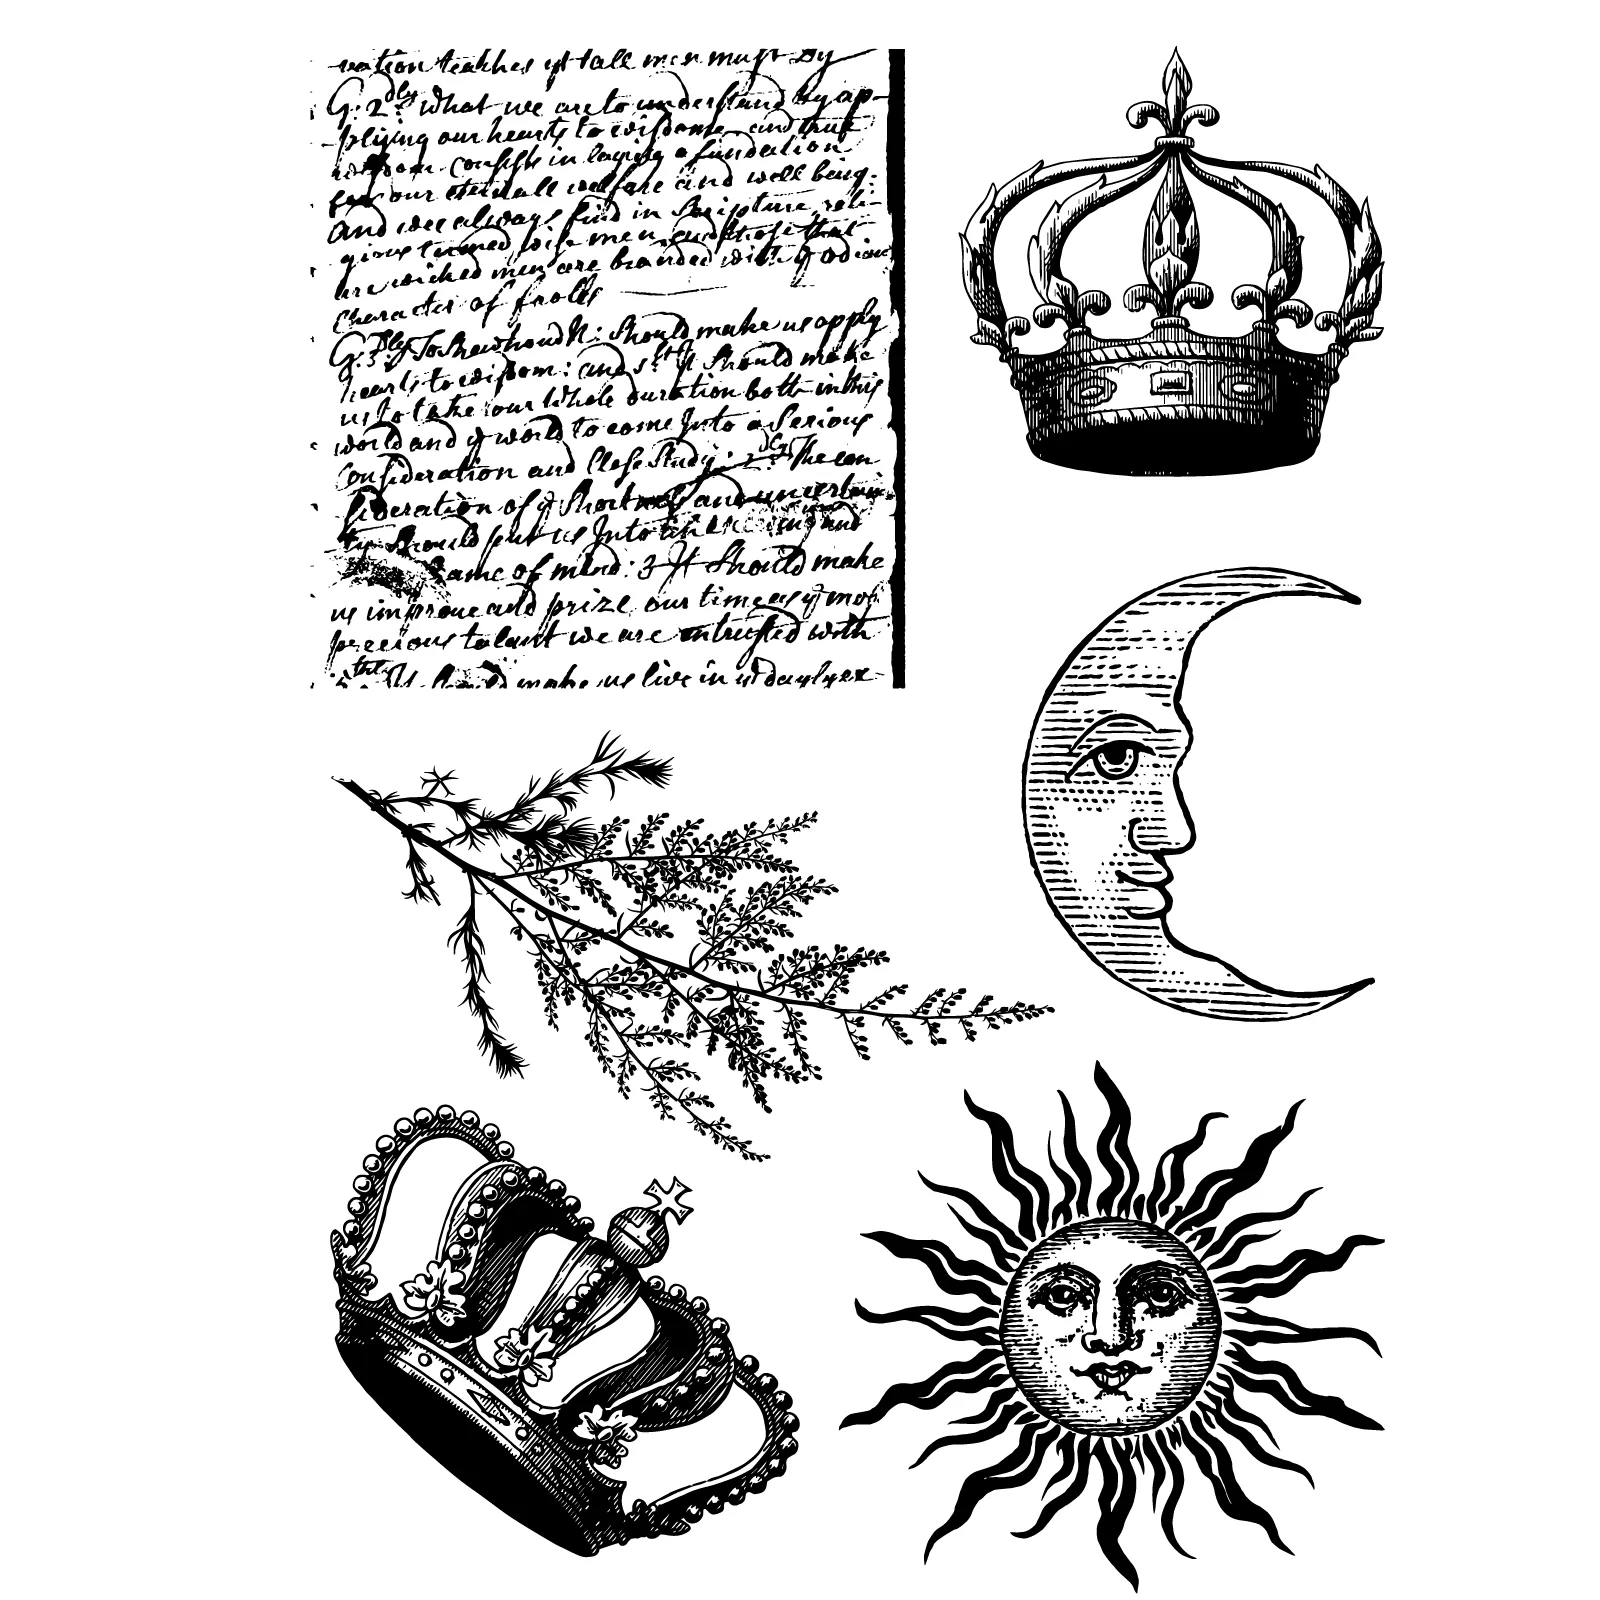 vation teaches yt all men must Dy
Q: 2dly What we are to understand by ap-
plijing our hearts to wisdome and true
wisdom consists in laying a fundation
for our eternall welfare and well being.
and wee always find in Scripture reli-
gious turned wise men and those that
are wicked men are branded with ye odious
character of fools
Q: 3dly To Shew how N: should make us apply
hearts to wisdom: and 1st It Should make
us to take our Whole duration both in this
world and ye world to come Into a Serious
Consideration and Close Study: 2dly The con
sideration of ye Shortness and uncertain
ty Should put us Into and
frame of mind: 3 It Should make
us improve and prize our time as ye most
precious talant we are intrusted with
Should make us live in dayly ex-